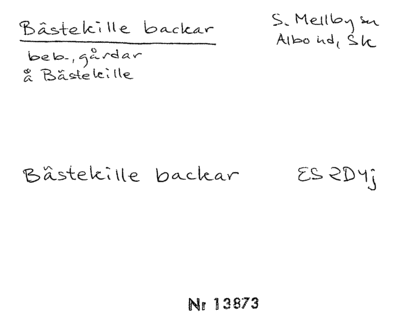 Båstekille backar
S. Mellby sn
Albo hd, Sk
beb., gårdar
å Båstekille
Båstekille backar
ES 2D4j
Nr 13873